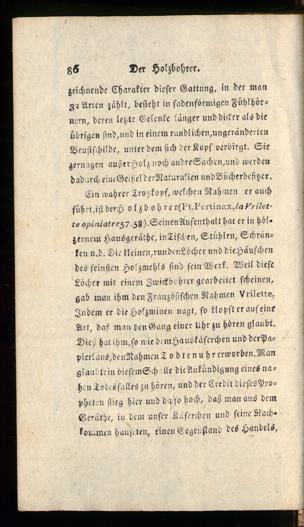 86 Der Holzbohrer.
zeichnende Charakter dieser Gattung, in der man
32 Arten zählt, besteht in fadenförmigen Fühlhör-
nern, deren letzte Gelenke länger und dicker als die
übrigen sind, und in einem rundlichen, ungeränderten
Brustschilde, unter dem sich der Kopf verbirgt. Sie
zernagen außer Holz noch andre Sachen, und werden
dadurch eine Geißel der Naturalien und Bücherbesitzer.
Ein wahrer Trotzkopf, welchen Nahmen er auch
führt, ist der Holzbohrer (Pt. Pertinax, la Vrilet-
te opiniatre 57. 58). Seinen Aufenthalt hat er in höl-
zernem Hausgeräthe, in Tischen, Stühlen, Schrän-
ken u. d. Die kleinen, runden Löcher und die Häuschen
des feinsten Holzmehls sind sein Werk. Weil diese
Löcher mit einem Zwickbohrer gearbeitet scheinen,
gab man ihm den Französischen Nahmen Vrilette,
Indem er die Holzminen nagt, so klopft er auf eine
Art, daß man den Gang einer Uhr zu hören glaubt.
Dieß hat ihm, so wie dem Hauskäferchen und der Pa-
pierlaus, den Nahmen Todtenuhr erworben. Man
glaubte in diesem Schalle die Ankündigung eines na-
hen Todesfalles zu hören, und der Credit dieses Pro-
pheten stieg hier und da so hoch, daß man aus dem
Geräthe, in dem unser Käferchen und seine Nach-
kommen hauseten, einen Gegenstand des Handels,